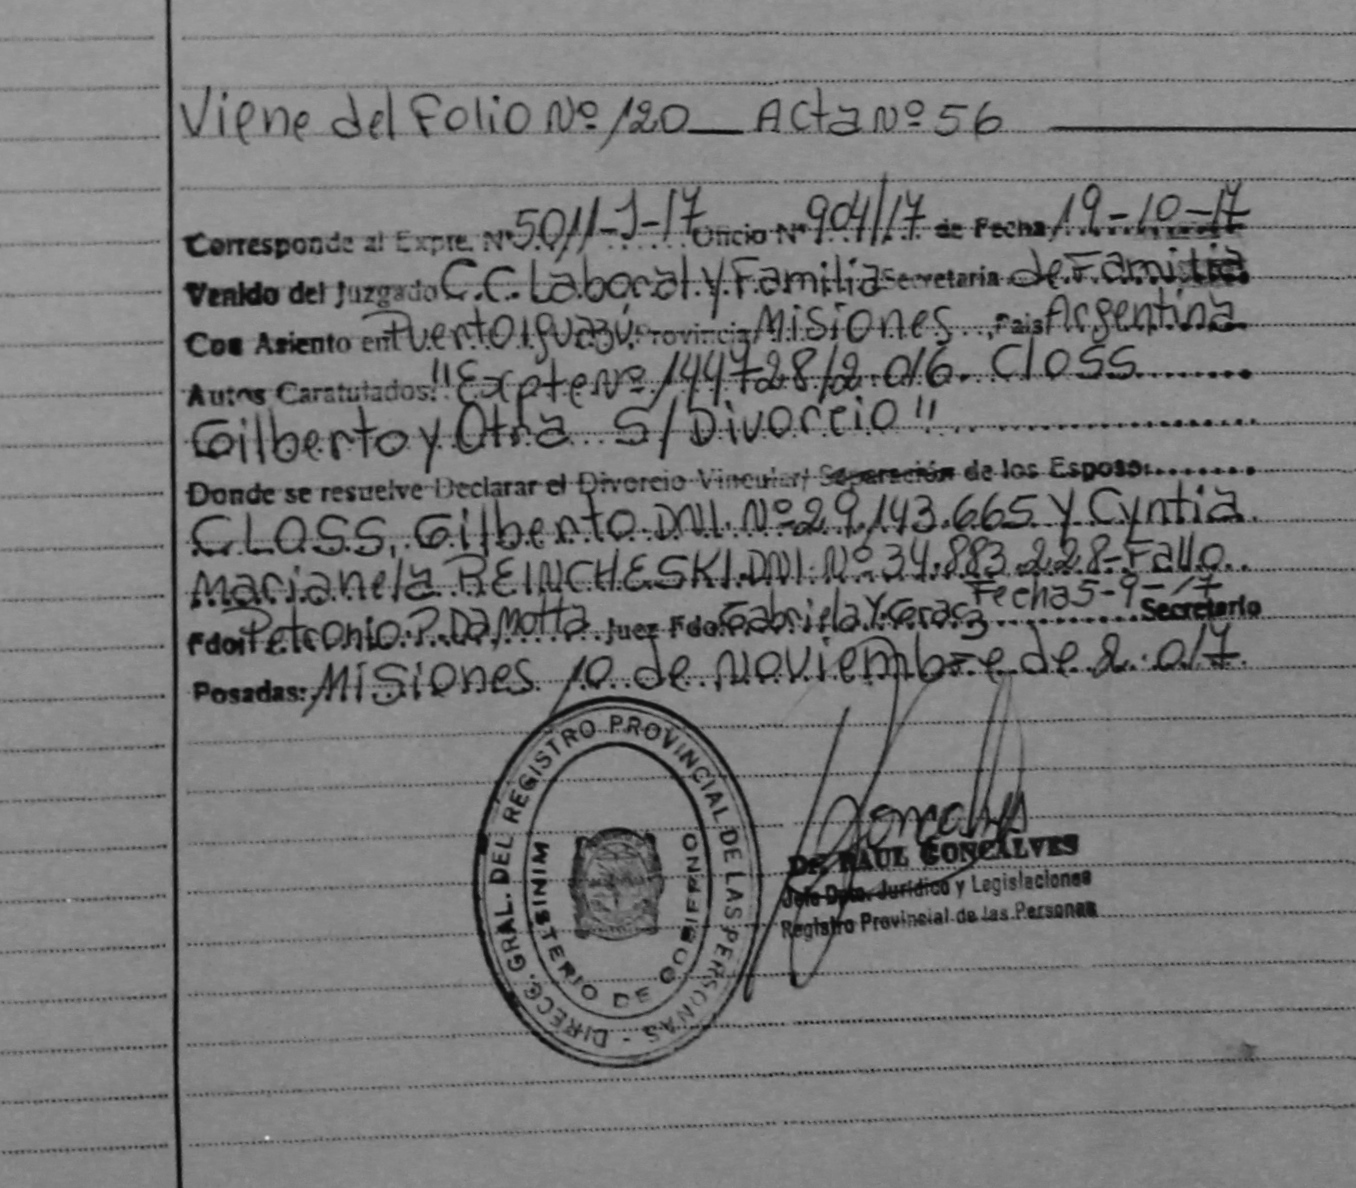 Viene del Folio Nº 120 Acta Nº 56
Corresponde al Expte. Nº 5011-J-17 Oficio Nº 904/17 de Fecha 19-10-17
Venido del Juzgado C.C. Laboral y Familia Secretaria de Familia
Con Asiento en Puerto Iguazú Provincia Misiones Pais Argentina
Autos Caratulados: "Expte Nº 144728/2.016. CLOSS
Gilberto y Otra S/ Divorcio"
Donde se resuelve Declarar el Divorcio Vincular/ Separación de los Esposo:
CLOSS, Gilberto DNI. Nº 29.143.665 Y Cyntia
Marianela REINCHESKI. DNI. Nº 34.883.228-Fallo
Fecha 5-9-17
Fdo: Petronio P. Da Motta Juez Fdo: Gabriela Y. Secretario
Posadas: Misiones 10 de Noviembre de 2.017
DIRECC. GRAL. DEL REGISTRO PROVINCIAL DE LAS PERSONAS -
MINISTERIO DE GOBIERNO
Goncalves
Dr. RAUL GONCALVES
Jefe Dpto. Jurídico y Legislaciones
Registro Provincial de las Personas